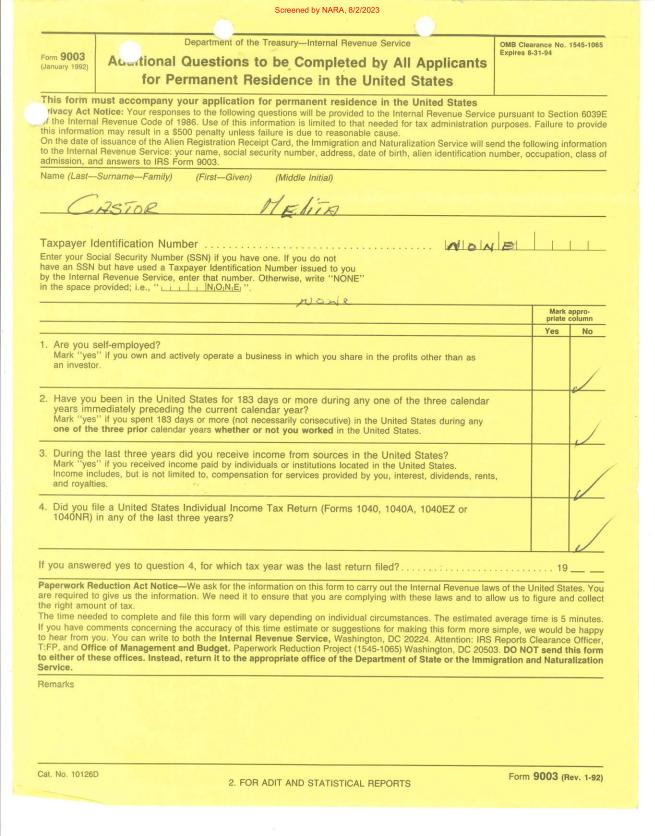 Screened by NARA, 8/2/2023
Form 9003
(January 1992)
Department of the Treasury—Internal Revenue Service
Additional Questions to be Completed by All Applicants
for Permanent Residence in the United States
OMB Clearance No. 1545-1065
Expires 8-31-94
This form must accompany your application for permanent residence in the United States
Privacy Act Notice: Your responses to the following questions will be provided to the Internal Revenue Service pursuant to Section 6039E
of the Internal Revenue Code of 1986. Use of this information is limited to that needed for tax administration purposes. Failure to provide
this information may result in a $500 penalty unless failure is due to reasonable cause.
On the date of issuance of the Alien Registration Receipt Card, the Immigration and Naturalization Service will send the following information
to the Internal Revenue Service: your name, social security number, address, date of birth, alien identification number, occupation, class of
admission, and answers to IRS Form 9003.
Name (Last—Surname—Family) (First—Given) (Middle Initial)
CASTOR
Taxpayer Identification Number NONE
Enter your Social Security Number (SSN) if you have one. If you do not
have an SSN but have used a Taxpayer Identification Number issued to you
by the Internal Revenue Service, enter that number. Otherwise, write "NONE"
in the space provided; i.e., " | | | |N|O|N|E| ".
none
Mark appro-
priate column
Yes No
1. Are you self-employed?
Mark "yes" if you own and actively operate a business in which you share in the profits other than as
an investor.
2. Have you been in the United States for 183 days or more during any one of the three calendar
years immediately preceding the current calendar year?
Mark "yes" if you spent 183 days or more (not necessarily consecutive) in the United States during any
one of the three prior calendar years whether or not you worked in the United States.
3. During the last three years did you receive income from sources in the United States?
Mark "yes" if you received income paid by individuals or institutions located in the United States.
Income includes, but is not limited to, compensation for services provided by you, interest, dividends, rents,
and royalties.
4. Did you file a United States Individual Income Tax Return (Forms 1040, 1040A, 1040EZ or
1040NR) in any of the last three years?
If you answered yes to question 4, for which tax year was the last return filed? 19 __ __
Paperwork Reduction Act Notice—We ask for the information on this form to carry out the Internal Revenue laws of the United States. You
are required to give us the information. We need it to ensure that you are complying with these laws and to allow us to figure and collect
the right amount of tax.
The time needed to complete and file this form will vary depending on individual circumstances. The estimated average time is 5 minutes.
If you have comments concerning the accuracy of this time estimate or suggestions for making this form more simple, we would be happy
to hear from you. You can write to both the Internal Revenue Service, Washington, DC 20224. Attention: IRS Reports Clearance Officer,
T:FP, and Office of Management and Budget. Paperwork Reduction Project (1545-1065) Washington, DC 20503. DO NOT send this form
to either of these offices. Instead, return it to the appropriate office of the Department of State or the Immigration and Naturalization
Service.
Remarks
Cat. No. 10126D
2. FOR ADIT AND STATISTICAL REPORTS
Form 9003 (Rev. 1-92)